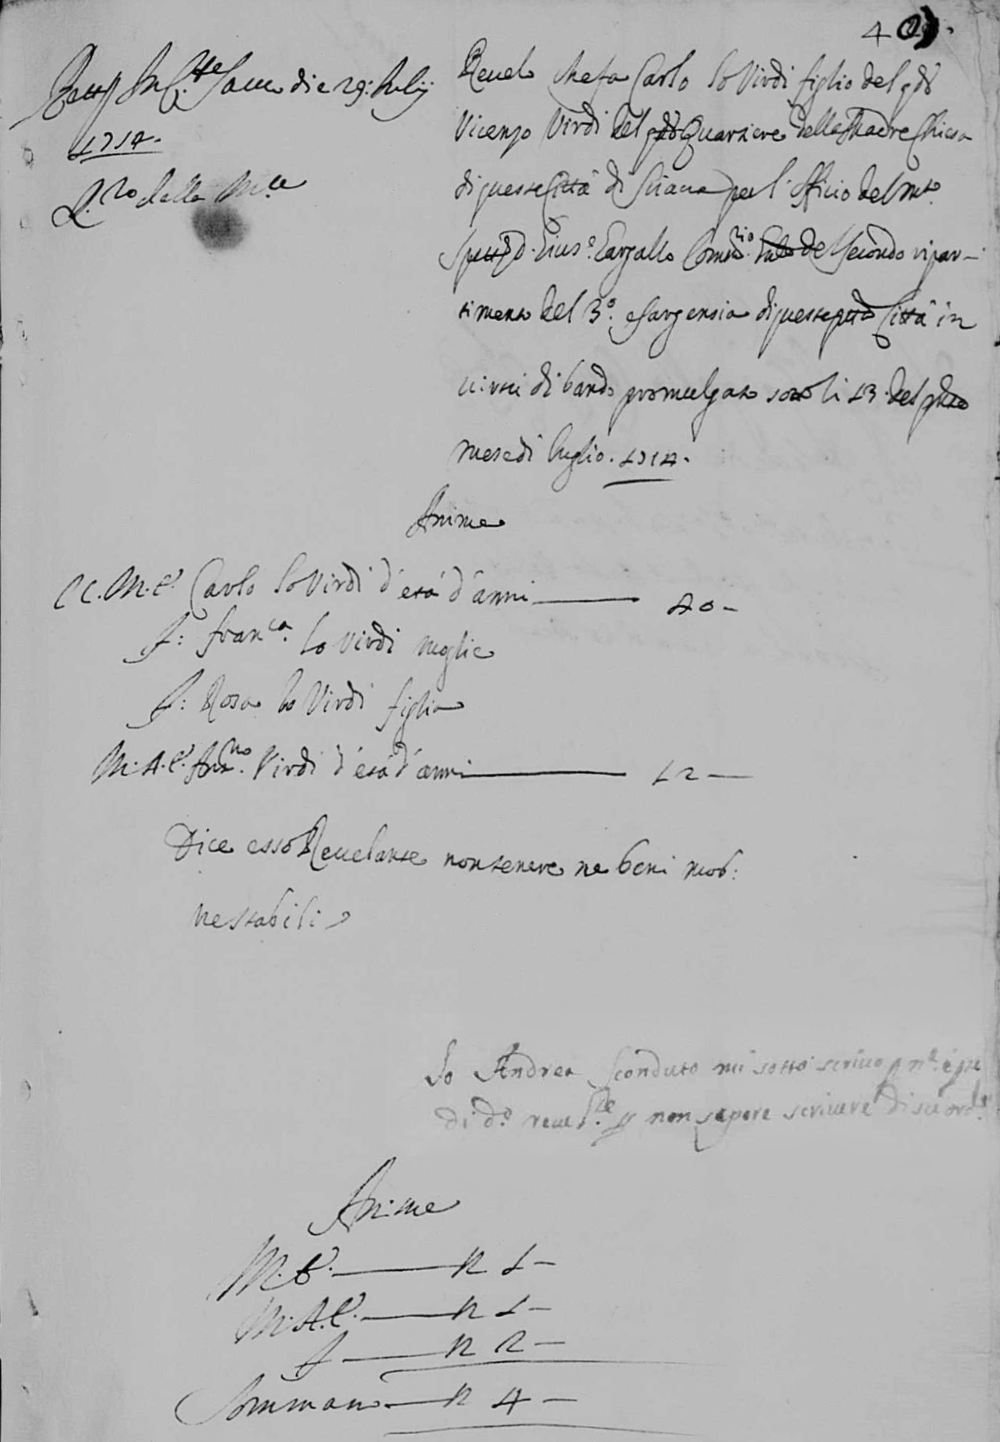 4
die 29: Julij
1714.
della M.ce
Revelo che fa Carlo lo Virdi figlio del qdo
Vicenzo Virdi del Quartiere della Madre Chiesa
di questa Città di Sciacca per l'officio del
Spett. D. Gius.e Gargallo del secondo ripar-
timento del 3.o di questa Città in
virtù di bando promulgato sotto li 13. del pdto
mese di luglio. 1714.
Anime
CC. M.C. Carlo lo Virdi d'età d'anni 40
F: Fran.ca lo Virdi moglie
F: Rosa lo Virdi figlia
M.A.C. Ant.no Virdi d'età d'anni 12
Dice esso Revelante non tenere ne beni mob:
ne stabili
Io Andrea Sconduto mi sotto scrivo
di do. reve.te p non sapere scrivere
Anime
M.C. n 1
M.A.C. n 1
F n 2
Sommano n 4